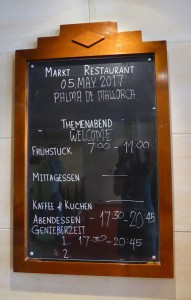 MARKT RESTAURANT
05.MAY.2017
PALMA DE MALLORCA
THEMENABEND
WELCOME
FRÜHSTÜCK 7:00 - 11:00
MITTAGESSEN
KAFFEE & KUCHEN
ABENDESSEN - 17:30-20:45
GENIEßERZEIT
1. 17:30-20:45
2.